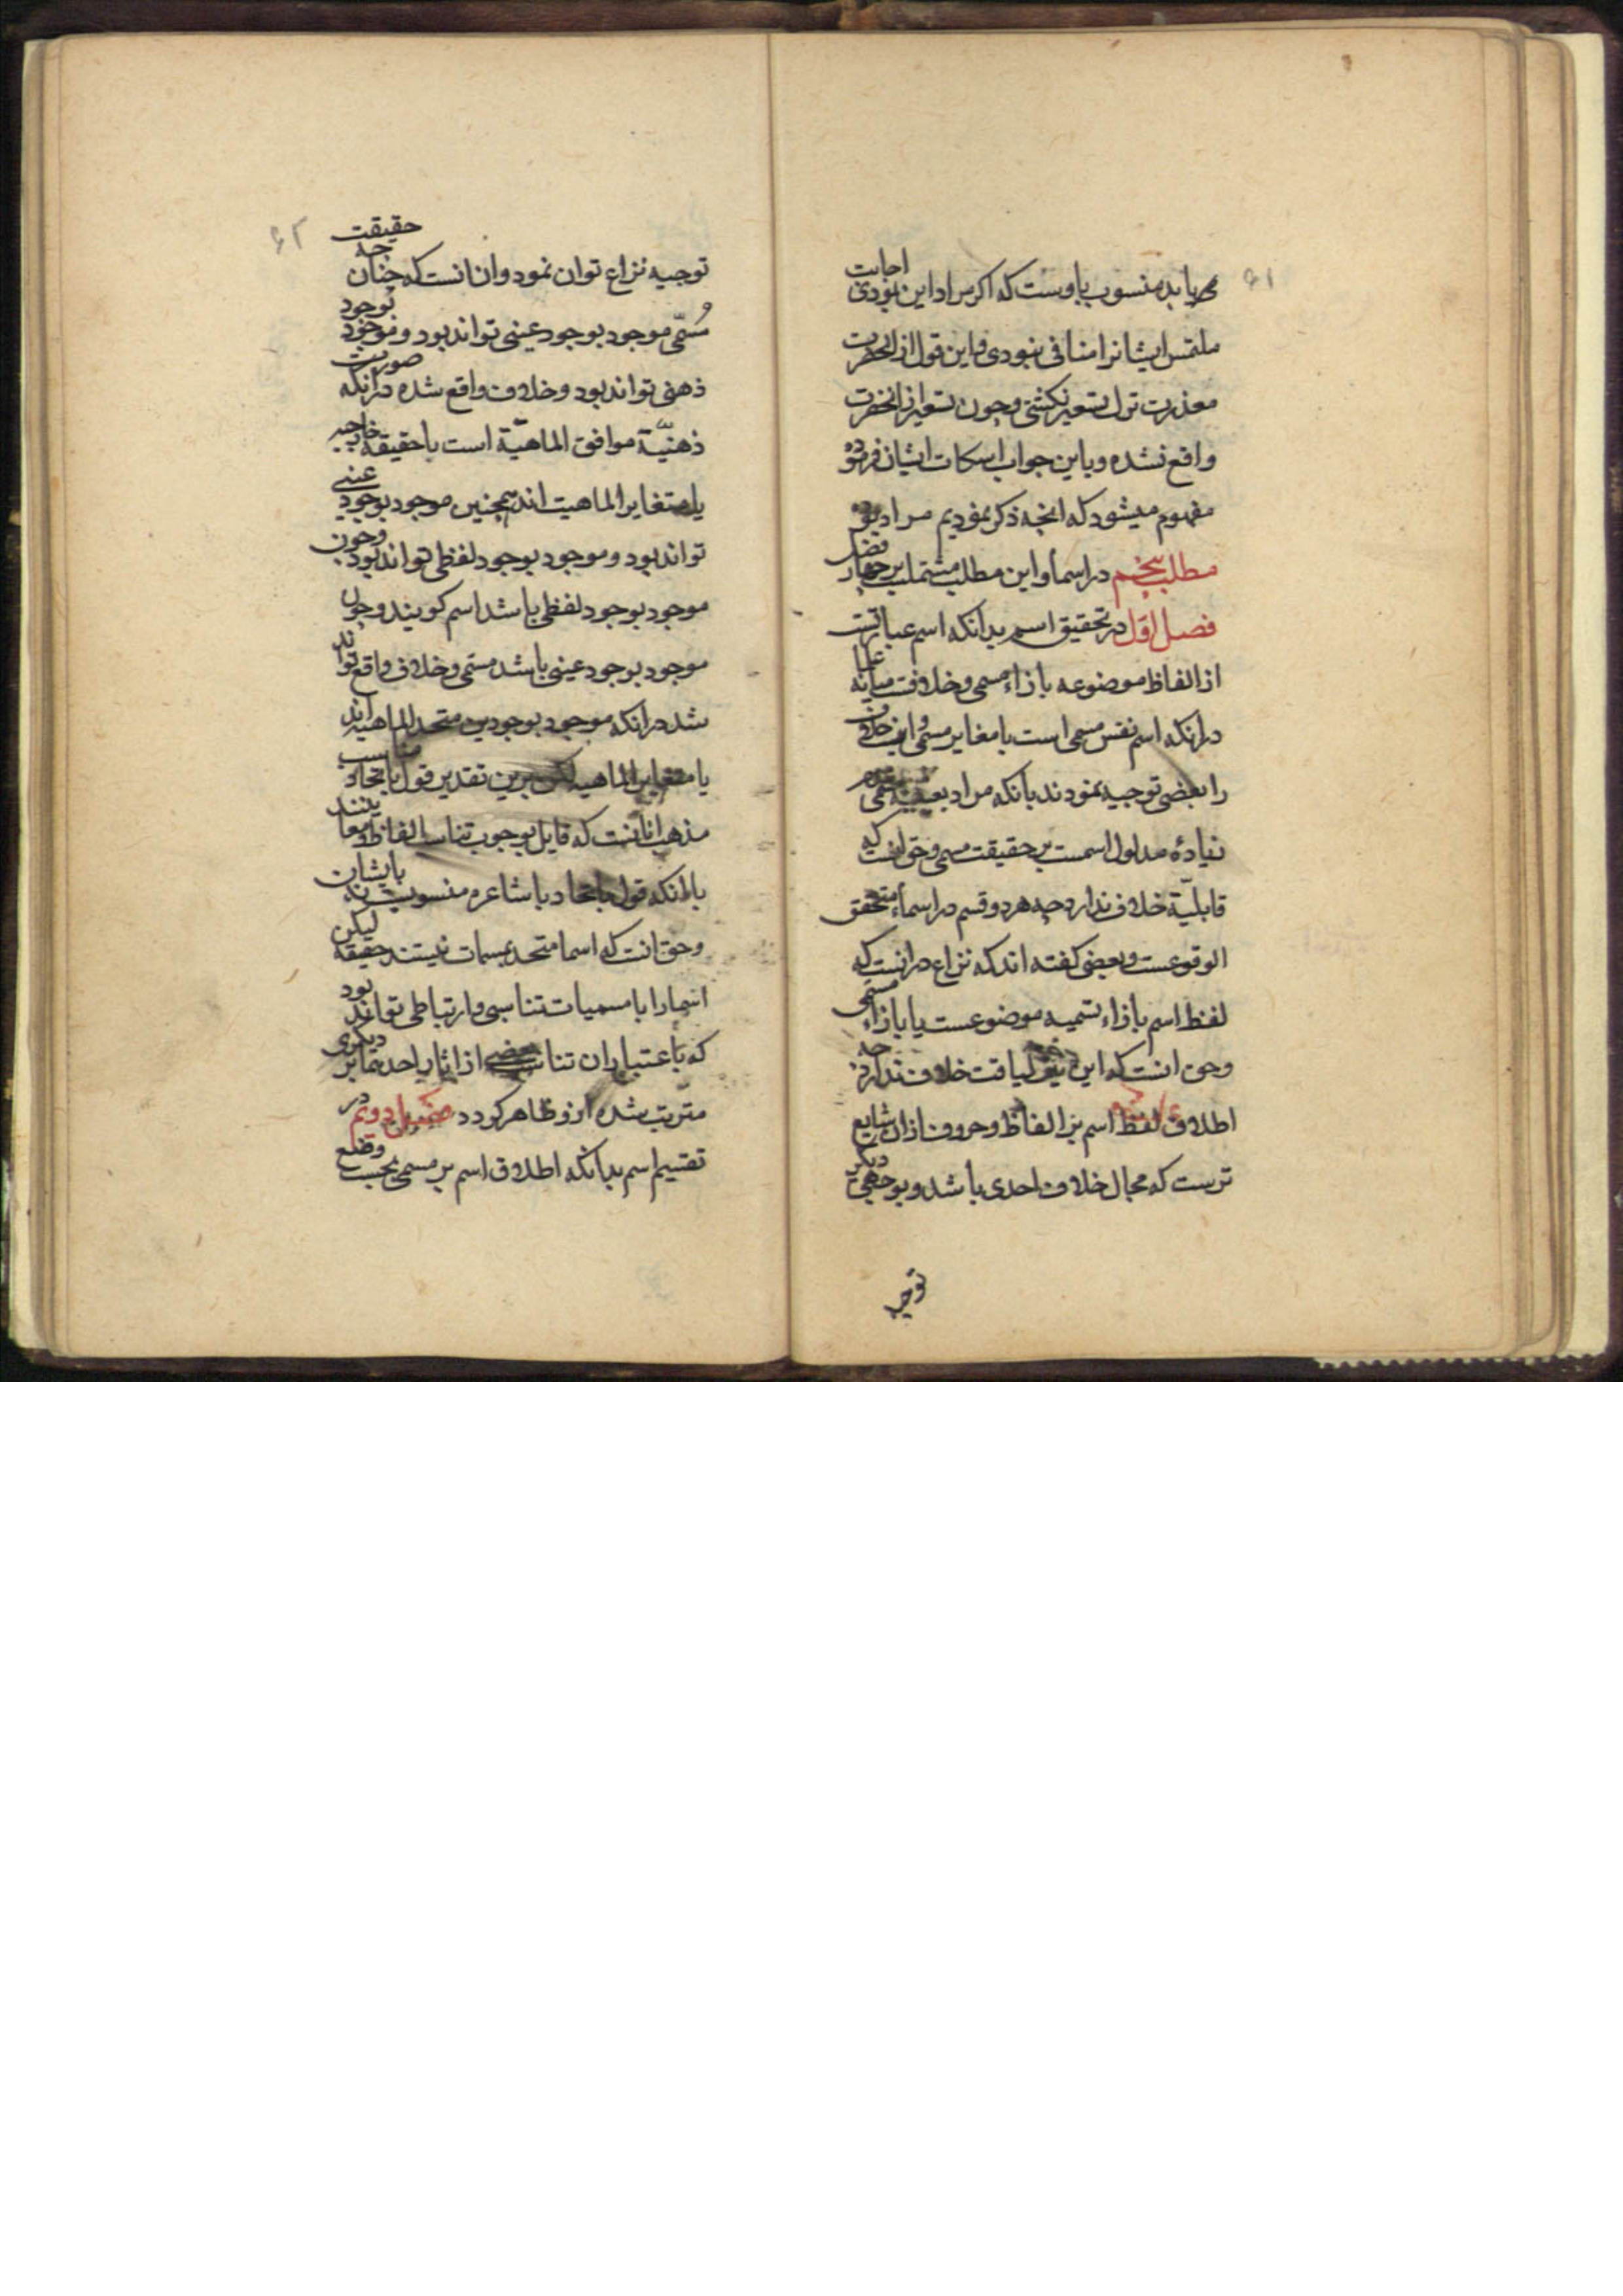 ۶۱
می‌یابد منسوب باوست که اکر مراد این بودی اجابت
ملتمس ایشانرا منافی نبودی و این قول از انحضرت
معذرت ترک تسعیر نکشتی و چون تسعیر از انحضرت
واقع نشده و باین جواب اسکات ایشان فرموده
مفهوم میشود که انچه ذکر نمودیم مراد بوده
مطلب پنجم در اسماء و این مطلب مشتملست بر چهار فصل
فصل اول در تحقیق اسم بدانکه اسم عبارتست
از الفاظ موضوعه بازاء مسمی و خلافست میانه علما
در انکه اسم نفس مسمی است یا مغایر مسمی و این خلاف
را بعضی توجیه نمودند بانکه مراد
زیادۀ مدلول اسمست بر حقیقت مسمی و حق انست که
قابلیّة خلاف ندارد چه هر دو قسم در اسماء متحقق
الوقوعست و بعضی کفته اند که نزاع در انست که
لفظ اسم بازاء تسمیه موضوعست یا بازاء مسمی
و حق انست که این نیز لیاقت خلاف ندارد چه
اطلاق لفظ اسم بر الفاظ و حروف ازان شایع
ترست که مجال خلاف احدی باشد و بوجهی دیکر
توجیه
۶۲
توجیه نزاع توان نمود و ان انست که چنان چه حقیقت
مُسمّی موجود بوجود عینی تواند بود و موجود بوجود
ذهنی تواند بود و خلاف واقع شده در انکه صورت
ذهنیّة موافق الماهیّة است با حقیقة خارجیه
یا متغایر الماهیت اند همچنین موجود بوجود عینی
تواند بود و موجود بوجود لفظی تواند بود و چون
موجود بوجود لفظی باشد اسم کویند و چون
موجود بوجود عینی باشد مسمی و خلاف واقع تواند
شد در انکه موجود بوجودین متحد الماهیه اند
یا متغایر الماهیه لکن برین تقدیر قول باتحاد مناسب
مذهب انانست که قایل بوجوب تناسب الفاظ و معا
باانکه قول باتحاد باشاعره منسوب بایشان
و حق انست که اسما متحد بمسمات نیستند حقیقة لیکن
اسما را با مسمیات تناسبی و ارتباطی تواند بود
که باعتبار ان تناسب بعضی از اثار احدهما بر دیکری
مترتب شده ازو ظاهر کردد فصل دویم در
تقسیم اسم بدانکه اطلاق اسم بر مسمی بحسب وضع